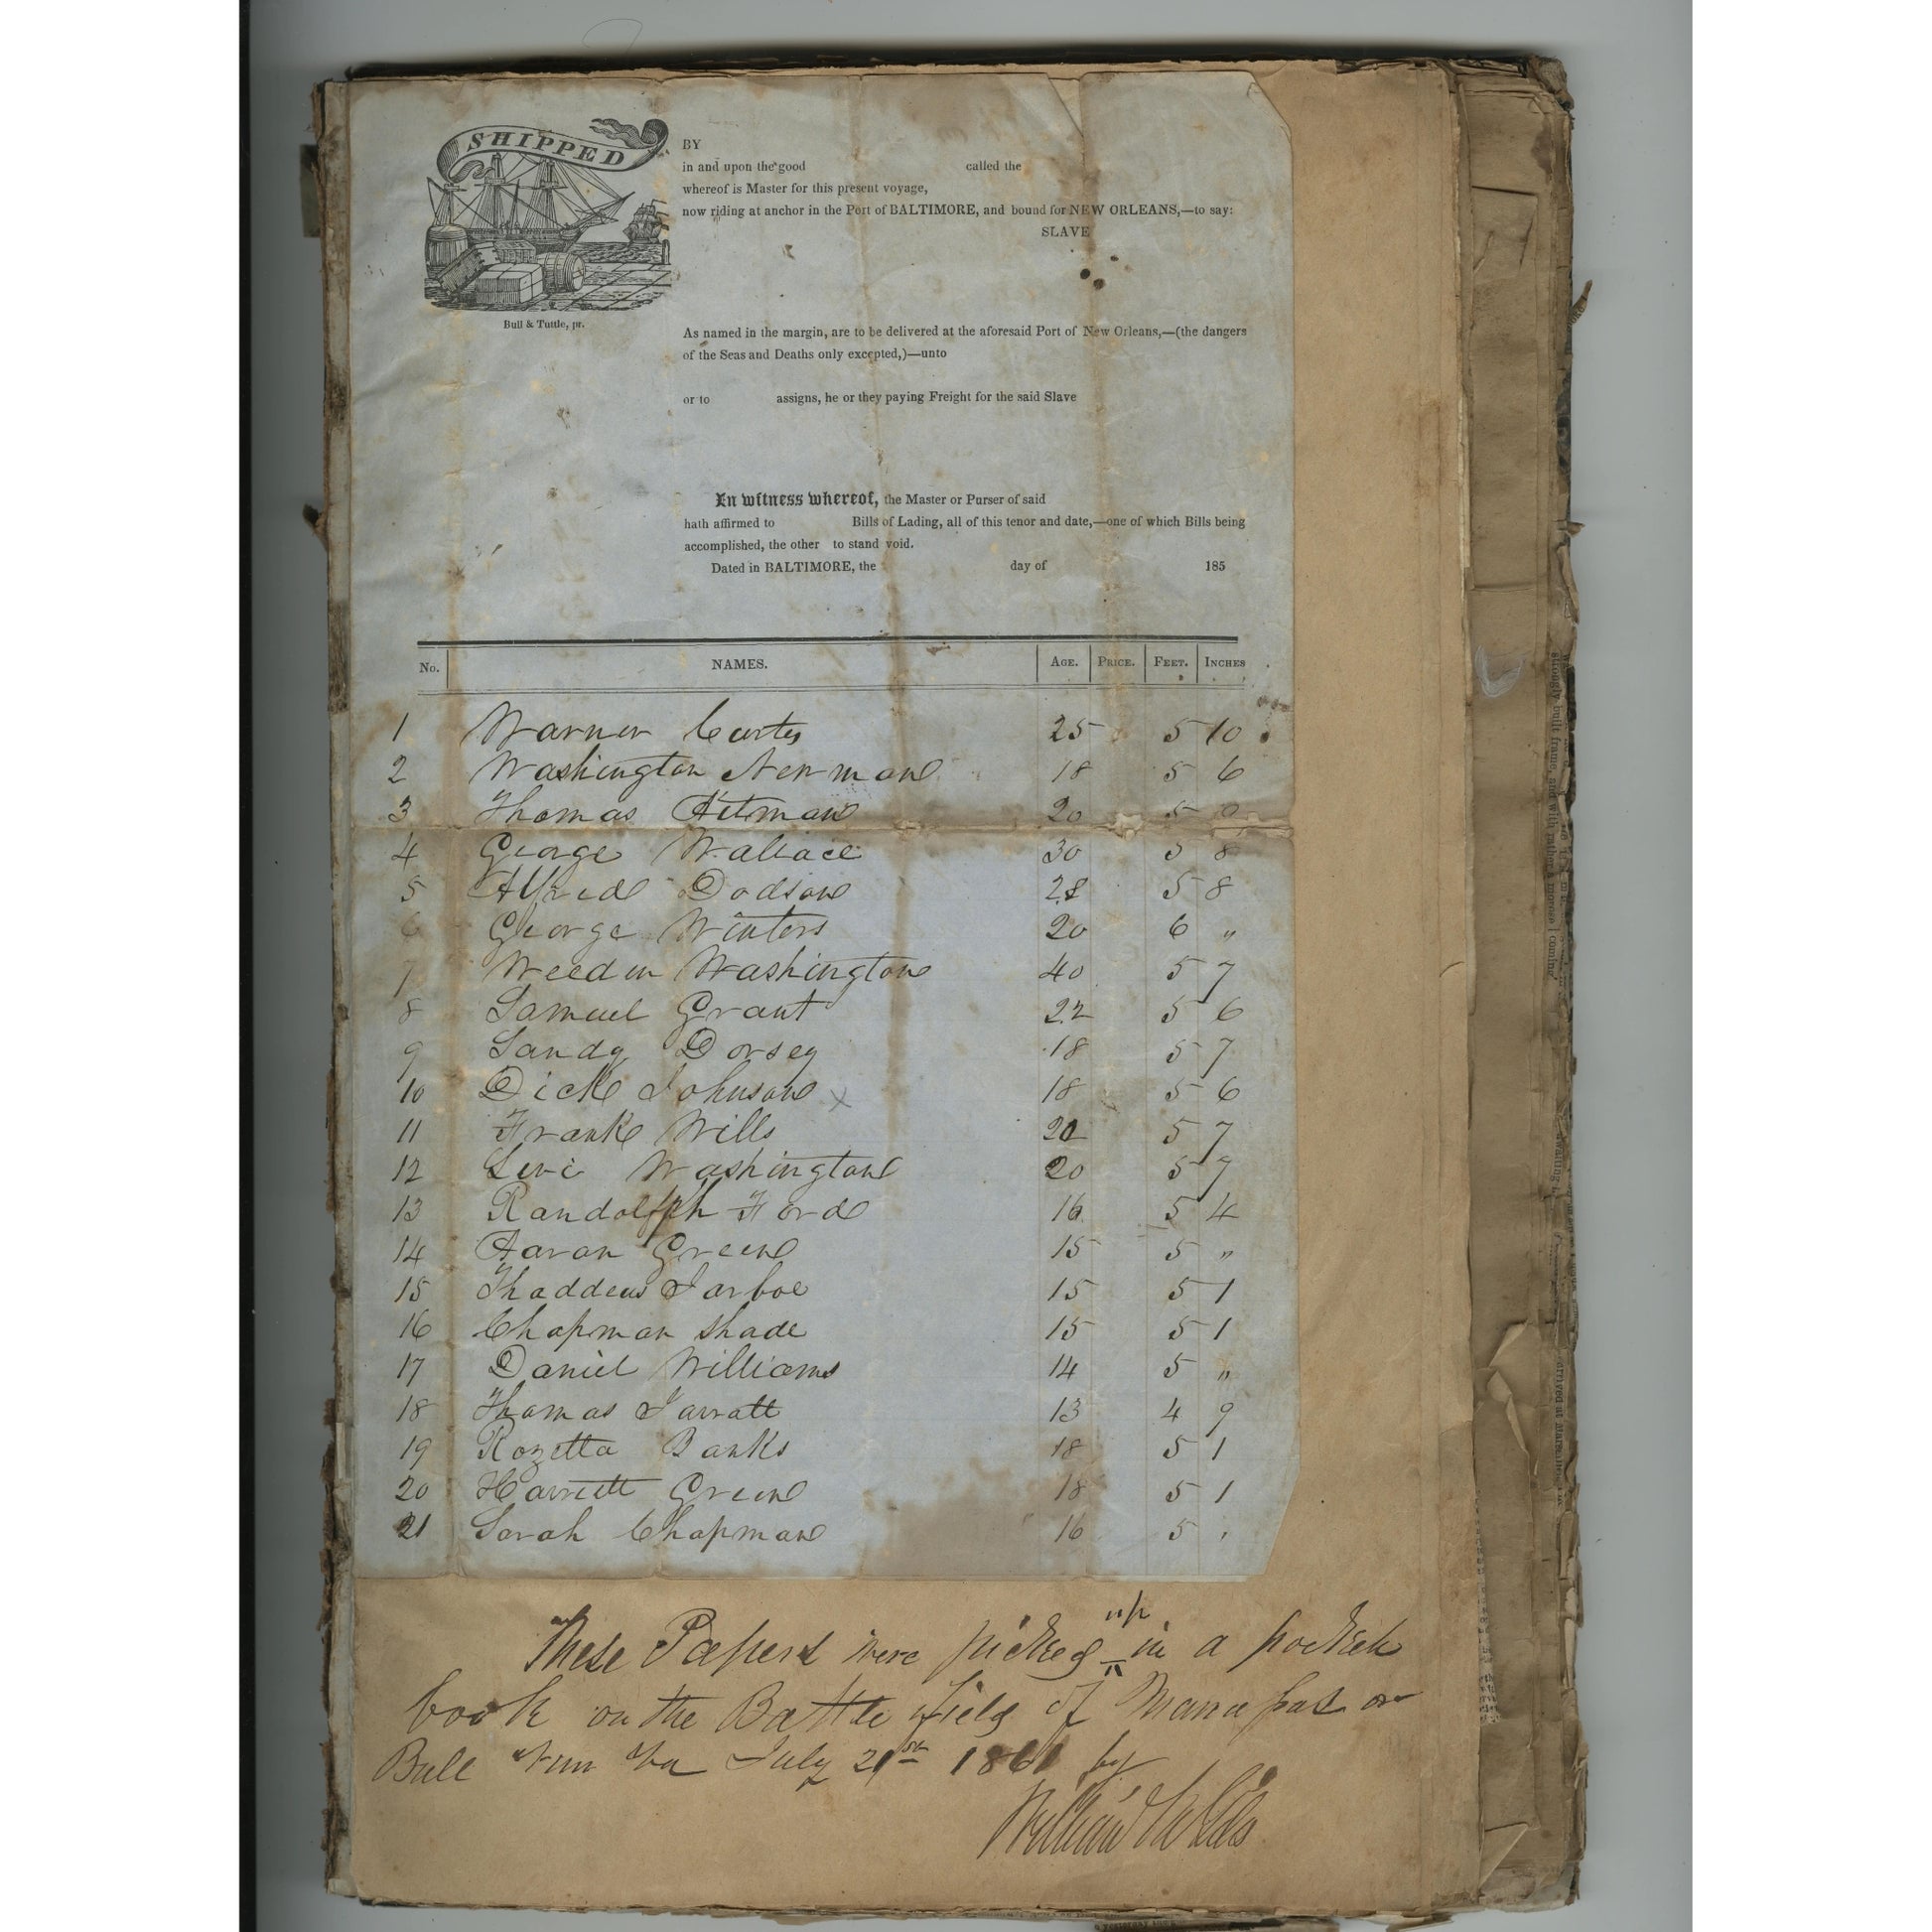 SHIPPED
Bull & Tuttle, pr.
BY
in and upon the good called the
whereof is Master for this present voyage,
now riding at anchor in the Port of BALTIMORE, and bound for NEW ORLEANS,—to say:
SLAVE
As named in the margin, are to be delivered at the aforesaid Port of New Orleans,—(the dangers
of the Seas and Deaths only excepted,)—unto
or to assigns, he or they paying Freight for the said Slave
In witness whereof, the Master or Purser of said
hath affirmed to Bills of Lading, all of this tenor and date,—one of which Bills being
accomplished, the other to stand void.
Dated in BALTIMORE, the day of 185
No. NAMES. AGE. PRICE. FEET. INCHES
1 Warner Curtis 25 5 10
2 Washington Newman 18 5 6
3 Thomas 20 5
4 George Wallace 30 5 8
5 Alfred Dodson 28 5 8
6 George Winters 20 6 "
7 Weeden Washington 40 5 7
8 Samuel Grant 22 5 6
9 Sandy Dorsey 18 5 7
10 Dick Johnson x 18 5 6
11 Frank Wills 20 5 7
12 Levi Washington 20 5 7
13 Randolph Ford 16 5 4
14 Aaron Green 15 5 "
15 Thaddeus Jarboe 15 5 1
16 Chapman Shade 15 5 1
17 Daniel Williams 14 5 "
18 Thomas Jarratt 13 4 9
19 Rozetta Banks 18 5 1
20 Harriett Green 18 5 1
21 Sarah Chapman 16 5
These Papers were picked up in a pocket
book on the Battle field of Manassas or
Bull Run Va July 21st 1861 by
William